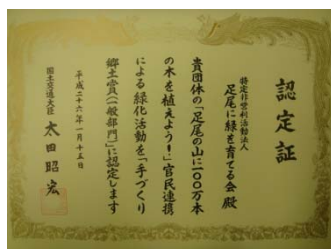 認定証
特定非営利活動法人
足尾に緑を育てる会 殿
貴団体の「足尾の山に一〇〇万本
の木を植えよう！」官民連携
による緑化活動を「手づくり
郷土賞(一般部門)」に認定します
平成二十六年一月十五日
国土交通大臣 太田昭宏